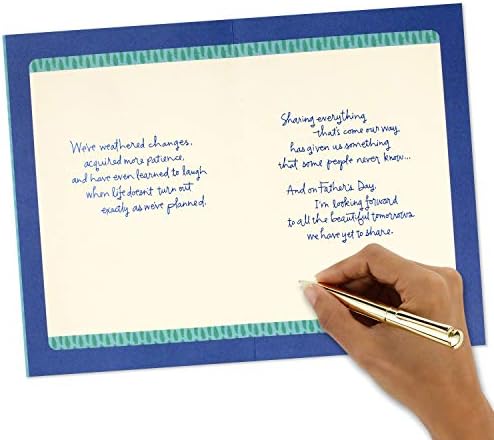 We've weathered changes,
acquired more patience,
and have even learned to laugh
when life doesn't turn out
exactly as we've planned.
Sharing everything
that's come our way
has given us something
that some people never know...
And on Father's Day,
I'm looking forward
to all the beautiful tomorrows
we have yet to share.